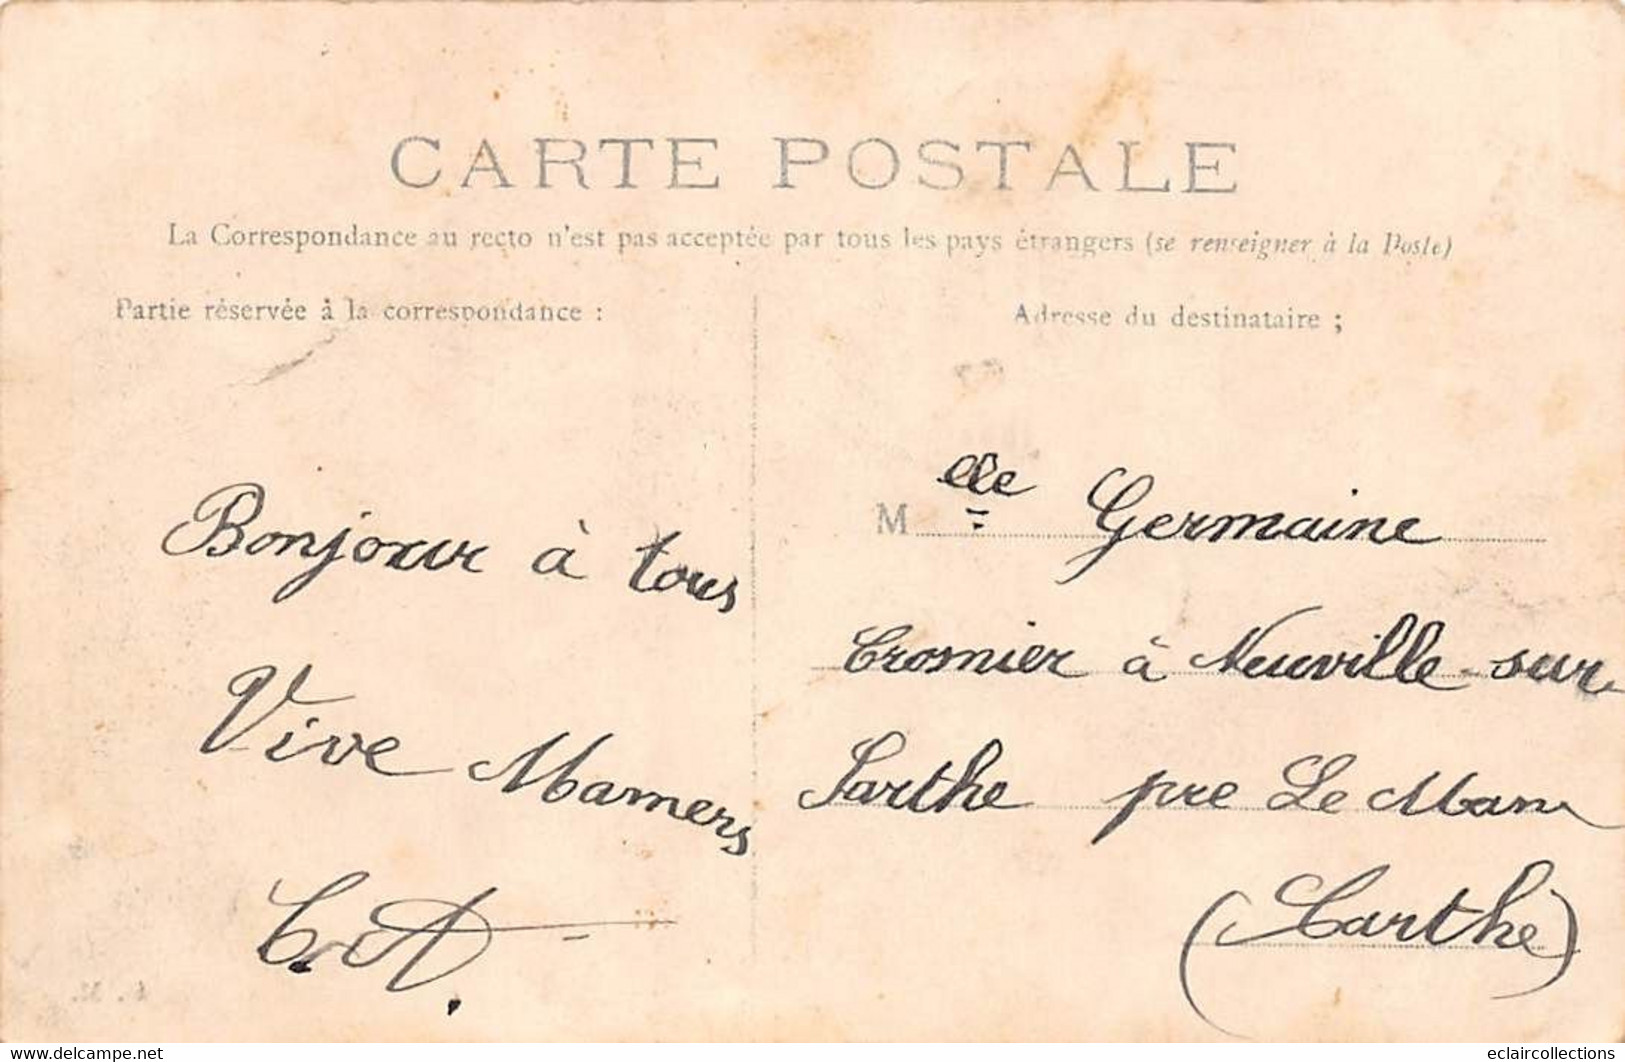 CARTE POSTALE
La Correspondance au recto n'est pas acceptée par tous les pays étrangers (se renseigner à la Poste)
Partie réservée à la correspondance :
Bonjour à tous
Vive Mamers
Adresse du destinataire ;
M elle Germaine
Cromier à Neuville-sur
Sarthe pre Le Mans
(Sarthe)
www.delcampe.net
eclaircollections